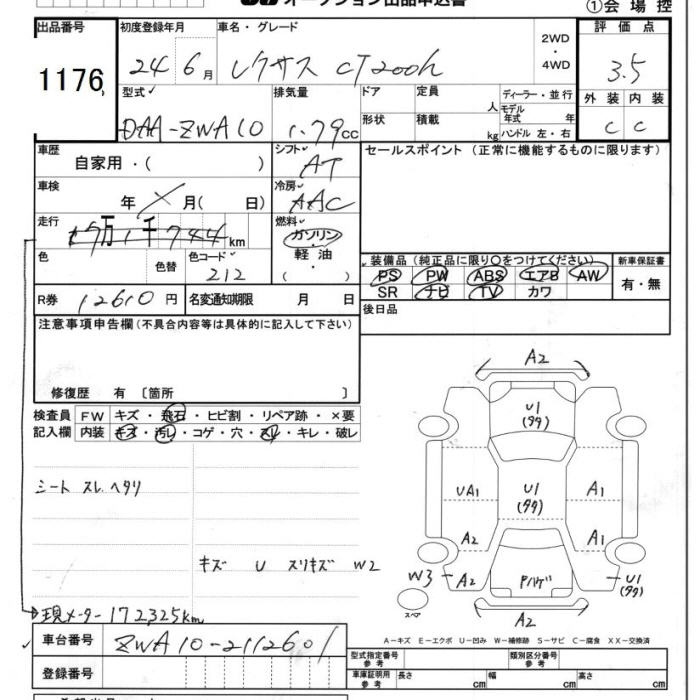 オークション出品申込書
①会場控
出品番号 初度登録年月 車名・グレード 2WD・4WD 評価点
1176 24 6月 レクサス CT200h 3.5
型式 排気量 ドア 定員 人 ディーラー・並行 外装 内装
DAA-ZWA10 1.79cc 形状 積載 kg モデル年式 年 ハンドル 左・右 C C
車歴 自家用・( ) シフト AT セールスポイント (正常に機能するものに限ります)
車検 年 X 月( 日) 冷房 AAC
走行 万 千 744 km 燃料 ガソリン・軽油・( )
色 色替 色コード 212 装備品 (純正品に限り○をつけてください) 新車保証書
PS PW ABS エアB AW 有・無
SR ナビ TV カワ
R券 12610円 名変通知期限 月 日 後日品
注意事項申告欄 (不具合内容等は具体的に記入して下さい)
修復歴 有 〔箇所 〕
検査員 FW キズ・飛石・ヒビ割・リペア跡・×要
記入欄 内装 キズ・汚レ・コゲ・穴・スレ・キレ・破レ
シート スレ ヘタリ
キズ U スリキズ W2
A2
U1
(タタ)
UA1 U1 A1
(タタ)
A2 A1
W3 A2 U1
(タタ)
スペア
A2
現メーター 172325km
A-キズ E-エクボ U-凹み W-補修跡 S-サビ C-腐食 XX-交換済
車台番号 ZWA10-2112601
型式指定番号 参考 類別区分番号 参考
登録番号 車庫証明用 参考 長さ cm 幅 cm 高さ cm